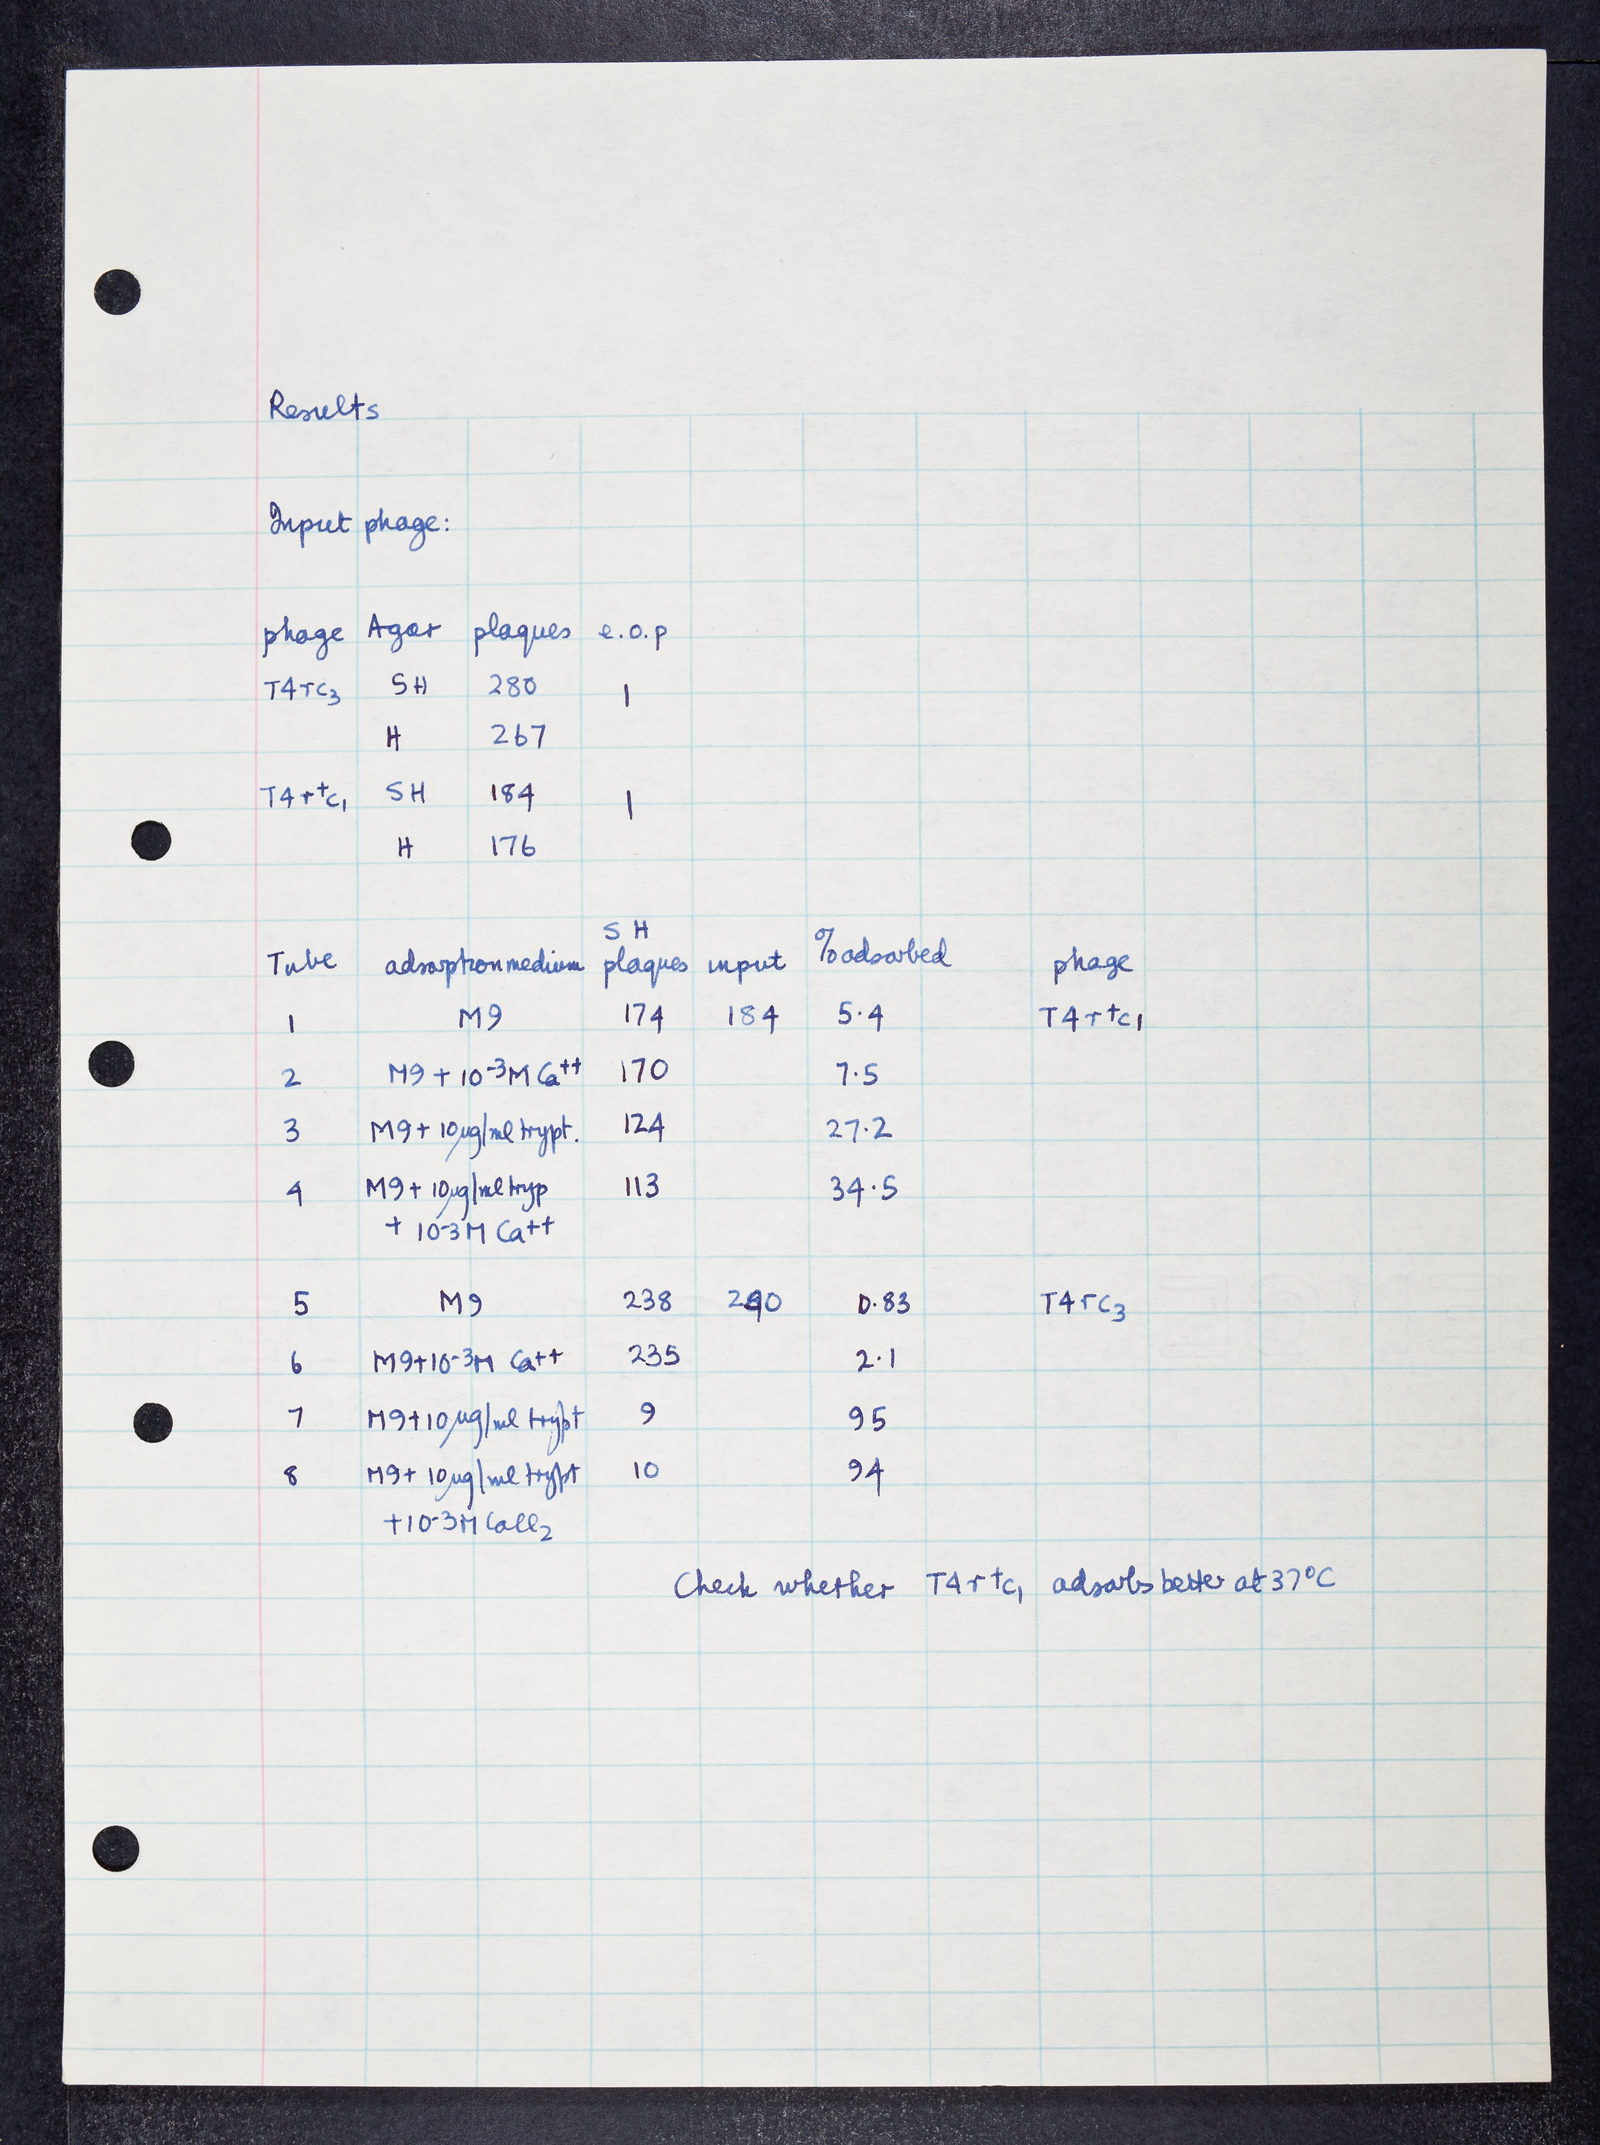 Results
Input phage:
phage Agar plaques e.o.p
T4rc₃ SH 280 1
H 267
T4r⁺c₁ SH 184 1
H 176
SH
Tube adsorption medium plaques input % adsorbed phage
1 M9 174 184 5.4 T4r⁺c₁
2 M9 + 10⁻³M Ca⁺⁺ 170 7.5
3 M9 + 10µg/ml trypt. 124 27.2
4 M9 + 10µg/ml tryp 113 34.5
+ 10⁻³M Ca⁺⁺
5 M9 238 240 0.83 T4rc₃
6 M9+10⁻³M Ca⁺⁺ 235 2.1
7 M9+10µg/ml trypt 9 95
8 M9+ 10µg/ml trypt 10 94
+10⁻³M CaCl₂
Check whether T4r⁺c₁ adsorbs better at 37°C